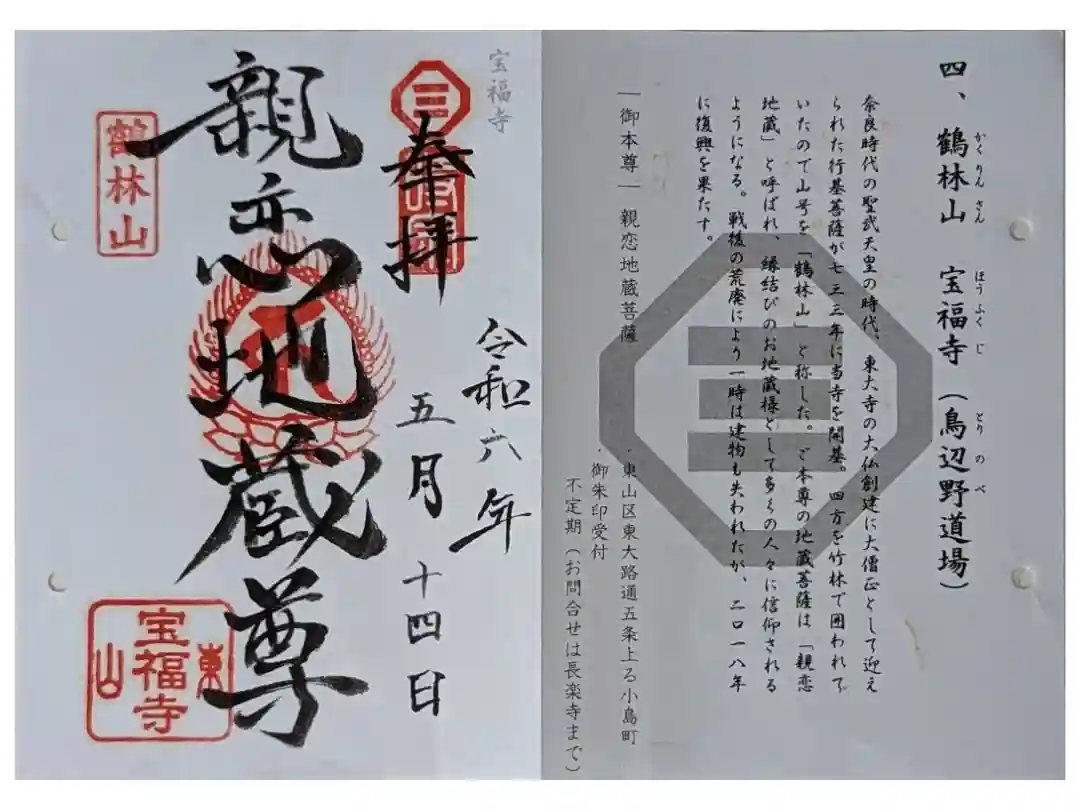 四、鶴林山 宝福寺（鳥辺野道場）
かくりんさん ほうふくじ とりのべ
奈良時代の聖武天皇の時代、東大寺の大仏創建に大僧正として迎え
られた行基菩薩が七三三年に当寺を開基。四方を竹林で囲われて
いたので山号を「鶴林山」と称した。ご本尊の地蔵菩薩は「親恋
地蔵」と呼ばれ、縁結びのお地蔵様として多くの人々に信仰される
ようになる。戦後の荒廃により一時は建物も失われたが、二〇一八年
に復興を果たす。
―御本尊― 親恋地蔵菩薩
・東山区東大路通五条上る小島町
・御朱印受付
不定期（お問合せは長楽寺まで）
宝福寺
三
奉拝
令和六年
五月十四日
親恋地蔵尊
鶴林山
東山
宝福寺